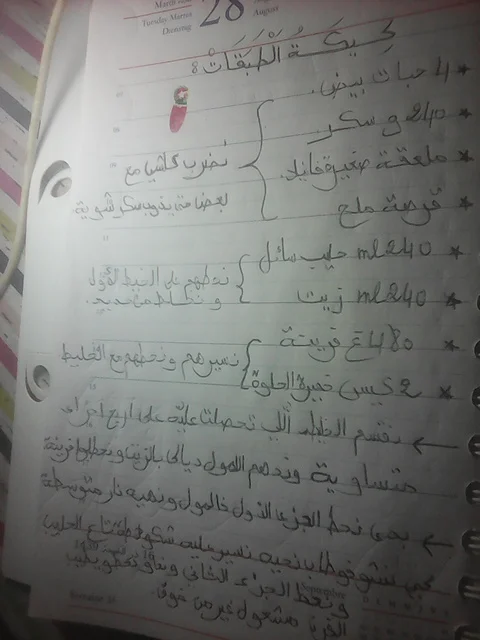 Martedì
Tuesday Martes
Dienstag
28
August
كيكة الطبقات :
* 4 حبات بيض.
* 240 غ سكر
* ملعقة صغيرة فانيلا.
* قرصة ملح
نضرب كلشي مع
بعضا حتى يذوب سكر شوية
* 240 ml حليب سائل
* 240 ml زيت
نحطهم على الخليط الأول
و نخلط من جديد.
* 480 غ فرينة
* 2 كيس خميرة الحلوة
نسيرهم و نحطهم مع الخليط
← نقسم الخليط اللي تحصلنا عليه على أربع أجزاء
متساوية وندهم المول ديالي بالزيت و فرينة
← نحط الجزء الأول فالمول و نار متوسطة
كي نشوفوا طاب نسير عليه شكولاطة تاع الحليب
و نحط الجزء الثاني يطيب
الفرن مشعول غير من فوق.
September